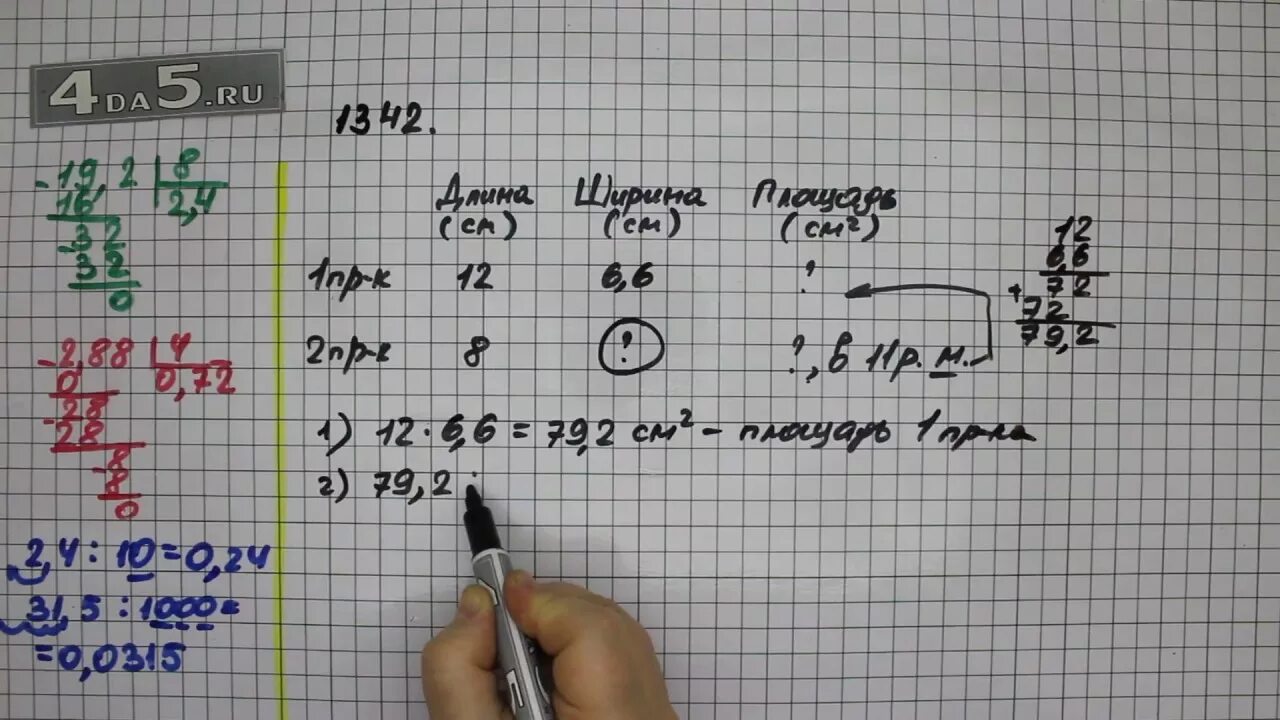 4DA5.RU
1342.
19,2 | 8
16 2,4
32
32
0
2,88 | 4
0 0,72
28
28
8
8
0
2,4 : 10 = 0,24
31,5 : 1000 =
= 0,0315
Длина Ширина Площадь
(см) (см) (см²)
1 пр-к 12 6,6 ?
2 пр-к 8 ? ?, в 11 р. м.
12
6,6
72
+
72
79,2
1) 12 · 6,6 = 79,2 см² – площадь 1 пр-ка
2) 79,2 :